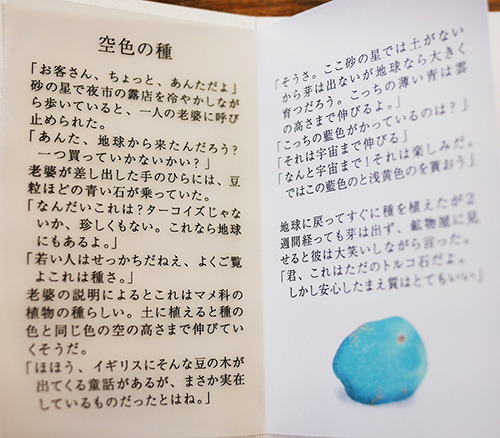 空色の種
「お客さん、ちょっと、あんただよ」
砂の星で夜市の露店を冷やかしなが
ら歩いていると、一人の老婆に呼び
止められた。
「あんた、地球から来たんだろう？
一つ買っていかないかい？」
老婆が差し出した手のひらには、豆
粒ほどの青い石が乗っていた。
「なんだいこれは？ターコイズじゃな
いか、珍しくもない。これなら地球
にもあるよ。」
「若い人はせっかちだねえ、よくご覧
よこれは種さ。」
老婆の説明によるとこれはマメ科の
植物の種らしい。土に植えると種の
色と同じ色の空の高さまで伸びてい
くそうだ。
「ほほう、イギリスにそんな豆の木が
出てくる童話があるが、まさか実在
しているものだったとはね。」
「そうさ。ここ砂の星では土がない
から芽は出ないが地球なら大きく
育つだろう。こっちの薄い青は雲
の高さまで伸びるよ。」
「こっちの藍色がかっているのは？」
「それは宇宙まで伸びる」
「なんと宇宙まで！それは楽しみだ。
ではこの藍色のと浅黄色のを貰おう」
地球に戻ってすぐに種を植えたが２
週間経っても芽は出ず、鉱物屋に見
せると彼は大笑いしながら言った。
「君、これはただのトルコ石だよ。
しかし安心したまえ質はとてもいい」